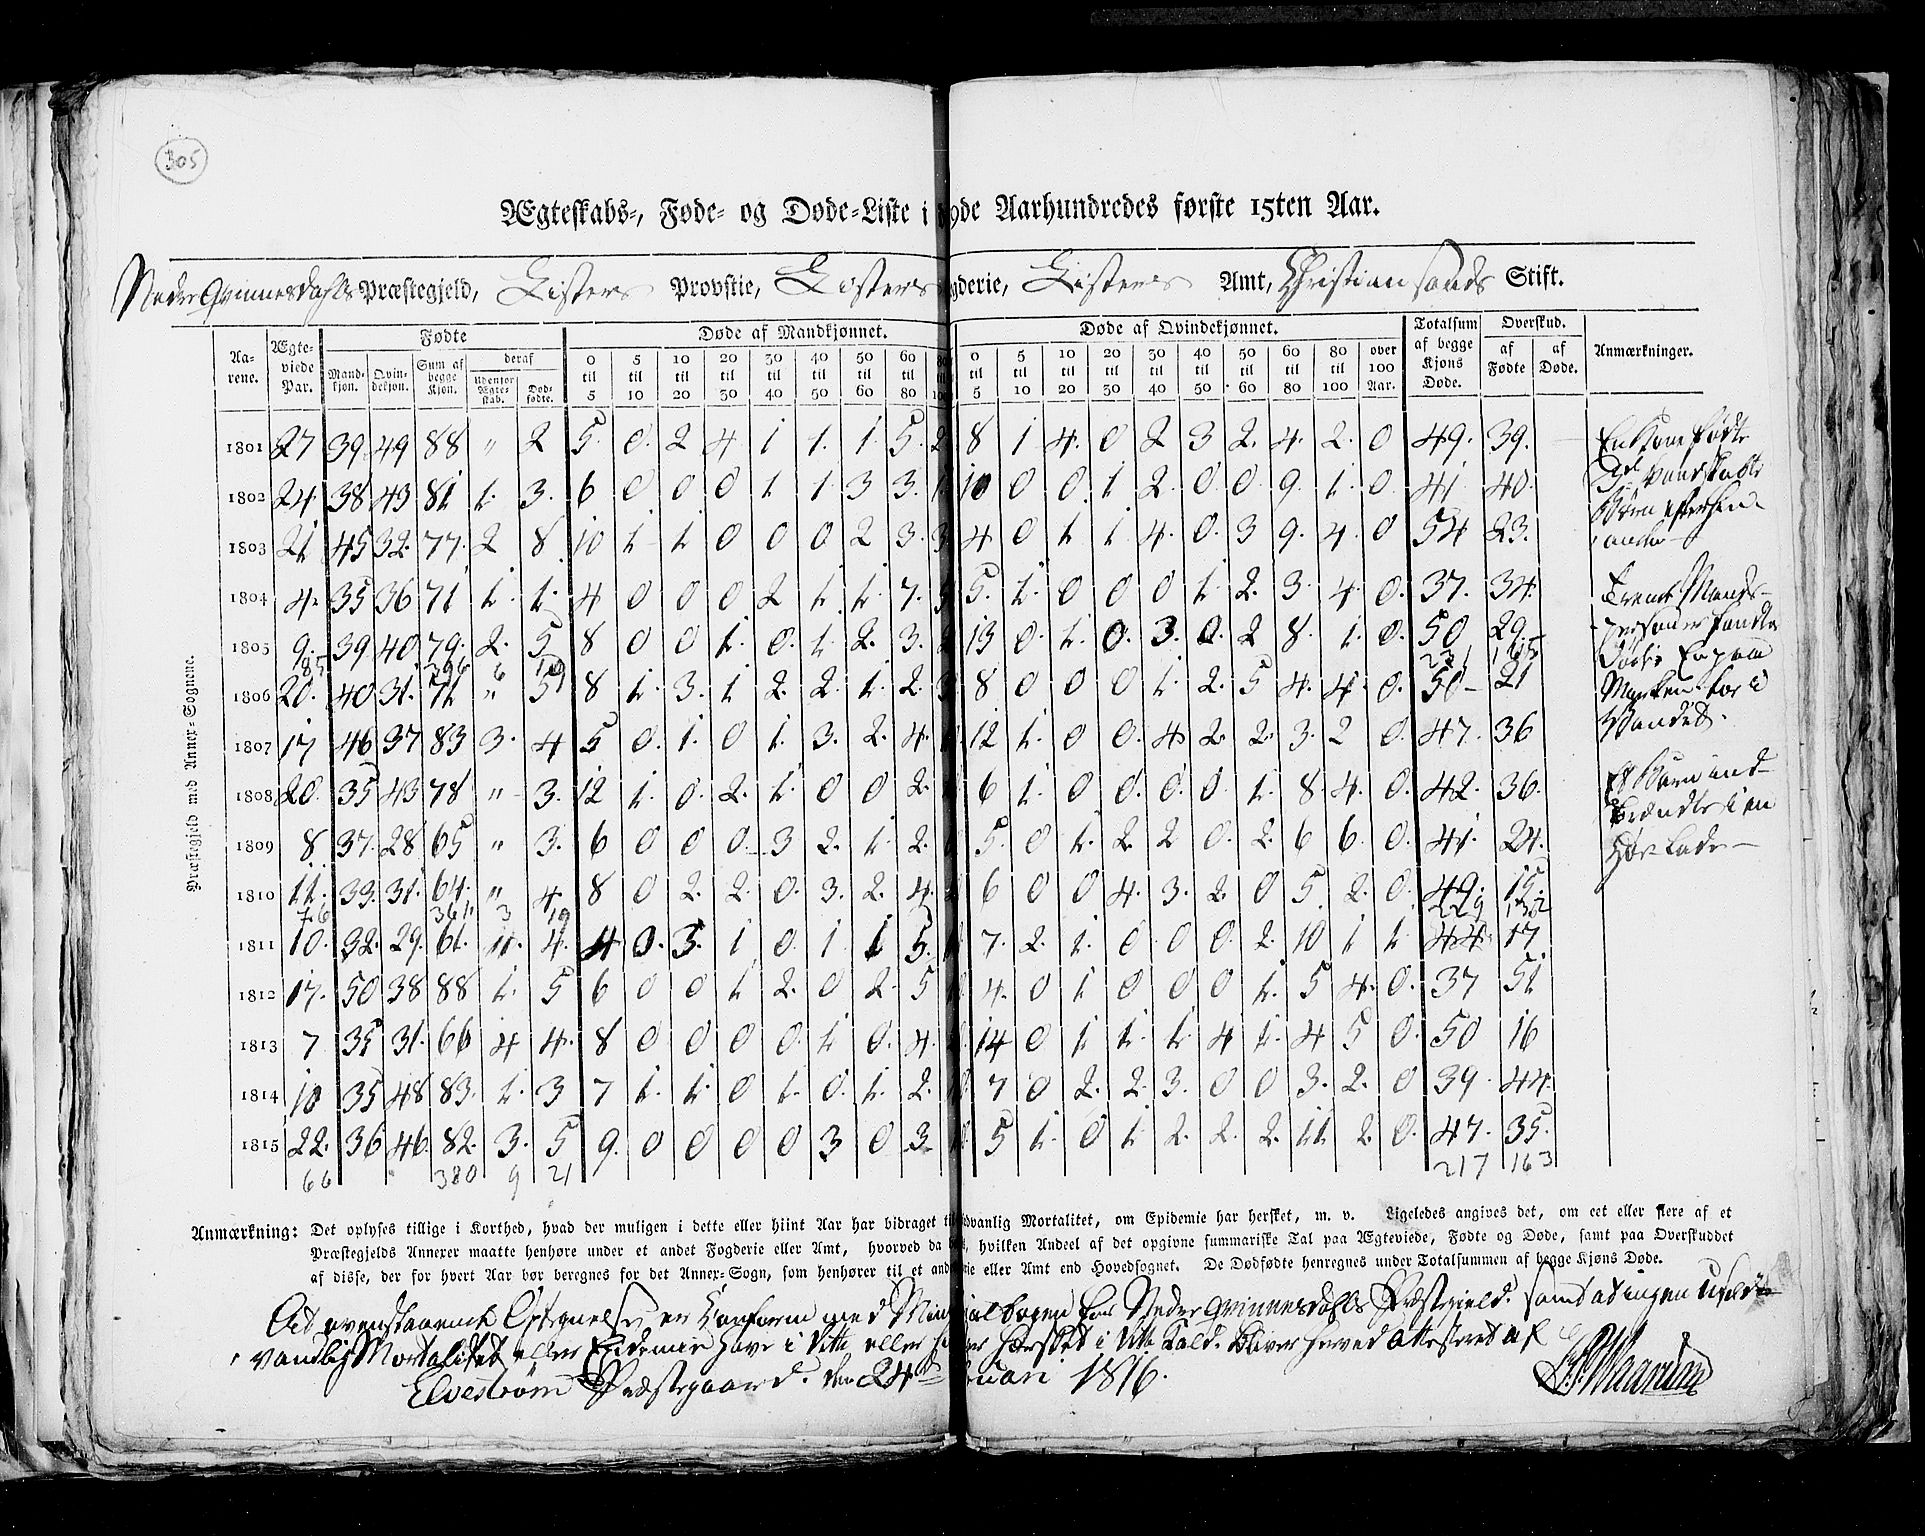 305
Ægteskabs-, Føde- og Døde-Liste i 19de Aarhundredes første 15ten Aar.
Nedre Qvinnesdahls Præstegjeld, Listers Provstie, Listers gderie, Listers Amt, Christiansands Stift.
Præstegjeld med Annex-Sognene.
Aarene. Ægteviede Par. Fødte Døde af Mandkjønnet. Døde af Qvindekjønnet. Totalsum af begge Kjøns Døde. Overskud. Anmærkninger.
Mandkjøn. Qvindekjøn. Sum af begge Kjøn. deraf Udenfor Ægteskab. Dødfødte. af Fødte af Døde.
0 til 5 5 til 10 10 til 20 20 til 30 30 til 40 40 til 50 50 til 60 60 til 80 0 til 5 5 til 10 10 til 20 20 til 30 30 til 40 40 til 50 50 til 60 60 til 80 80 til 100 over 100 Aar.
1801 27 39 49 88 " 2 5. 0. 2 4 1 1. 1. 5. 2 8 1 4. 0 2 3 2. 4. 2. 0 49. 39. En Kone fødte
1802 24 38 43 81 1. 3. 6 0 0 0 1 1. 3 3. 1 10 0 0. 1 2. 0 0 9. 1. 0. 41. 40.
1803 21 45 32. 77. 2 8. 10 1. 1. 0 0 0 2 3. 3 4 0 1 1. 4. 0. 3 9. 4. 0 54 23.
1804 4. 35 36 71 1. 1. 4 0 0 0 2 1. 1. 7. 5. 1. 0 0 0 1. 2. 3. 4 0. 37. 34.
1805 9. 39 40 79. 2. 5 8 0 0 1. 0. 1. 2. 3. 13 0. 1. 0. 3. 0. 2 8. 1. 0. 50 29
85 396 6 19 231 165
1806 20. 40 31. 71 " 5 8 1. 3. 1 2. 2. 1. 2. 3 8 0 0 0 1. 2. 5 4. 4. 0. 50 21
1807 17 46 37 83 3. 4 5 0. 1. 0 1. 3. 2. 4. 12 1. 0 0. 4 2. 2. 3. 2 0. 47. 36 Vandet.
1808 20. 35 43 78 " 3. 12 1. 0. 2. 1. 0 0 2. 6 1. 0 0. 0. 0 1. 8. 4. 0. 42. 36.
1809 8 37. 28 65 " 3. 6 0 0 0. 3 2. 1. 2. 5 0 1. 2. 2 0. 2. 6 6 0. 41. 24.
1810 11. 33. 31. 64. " 4. 8 0 2. 2. 0. 3. 2. 4. 6 0 0 4 3. 2. 0 5. 2. 0. 49. 15.
76 361. 3 19 229 132
1811 10. 32. 29. 61. 4. 4 0 3. 1 0. 1 1 5. 7. 2. 1. 0 0 0. 2. 10 1 1 44. 17
1812 17. 50 38 88 1. 5 6 0 0 1 2. 0 2. 5 4. 0 1 0 0 0 1. 5 4. 0. 37 51
1813 7 35 31. 66 4 4. 8 0 0 0 0. 1. 0. 4. 14 0 1 1. 1. 4 1. 4 5 0. 50 16
1814 10 35 48 83. 1. 3 7 1. 1. 0 1. 0. 1. 2. 7 0 2. 2. 3. 0 0 3. 2. 0 39. 44.
1815 22. 36 46. 82. 3. 5 9. 0 0 0 0 3 0 3. 5 1. 0 1. 2. 2. 2. 11 2. 0. 47. 35.
66 380 9 21 217 163
Anmærkning: Det oplyses tillige i Korthed, hvad der muligen i dette eller hiint Aar har bidraget til dvanlig Mortalitet, om Epidemie har hersket, m. v. Ligeledes angives det, om eet eller flere af et
Præstegjelds Annexer maatte henhøre under et andet Fogderie eller Amt, hvorved da , hvilken Andeel af det opgivne summariske Tal paa Ægteviede, Fødte og Døde, samt paa Overskuddet
af disse, der for hvert Aar bør beregnes for det Annex-Sogn, som henhører til et and rie eller Amt end Hovedsognet. De Dødfødte henregnes under Totalsummen af begge Kjøns Døde.
At ovenstaaende er Conform med Min ialbogen for Nedre Qvinnesdahls Præstegield. samt at ingen
vanlig Mortalitet eller Epidemie have i dette eller hersket i dette Kald. Bliver herved attesteret af
Elvestrøm Præstegaard. den 24de uari 1816.